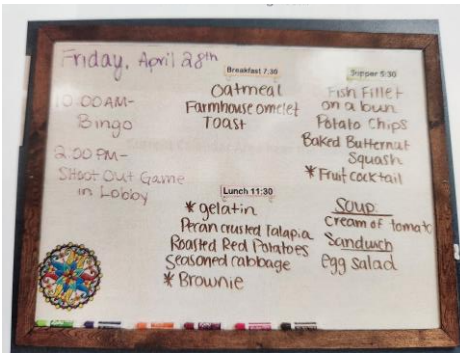 Friday, April 28th
10:00AM-
Bingo
2:00 PM-
Shoot Out Game
in Lobby
Breakfast 7:30
Oatmeal
Farmhouse omelet
Toast
Lunch 11:30
* gelatin
Pecan crusted Talapia
Roasted Red Potatoes
Seasoned cabbage
* Brownie
Supper 5:30
Fish Fillet
on a bun
Potato Chips
Baked Butternut
Squash
* Fruit cocktail
Soup
Cream of tomato
Sandwich
egg salad